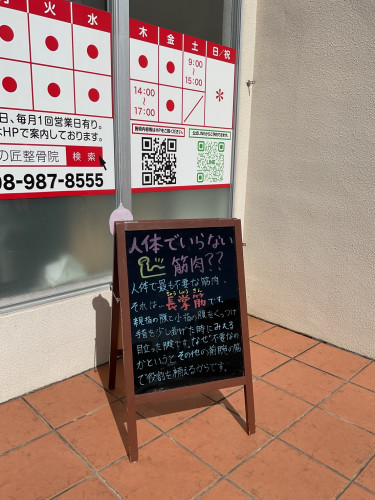 月 火 水
木 金 土 日/祝
9:00
～
15:00
14:00
～
17:00
＊
日、毎月1回営業日有り。
はHPで案内しております。
の匠整骨院 検索
98-987-8555
公式LINEからご予約できます
人体でいらない
筋肉??
人体で最も不要な筋肉、
それは…長掌筋です。
ちょうしょう きん
親指の腹と小指の腹をくっつけ
手首を少し曲げた時にみえる
目立った腱です。なぜ不要なの
かというとその他の前腕の筋
で役割を補えるからです。